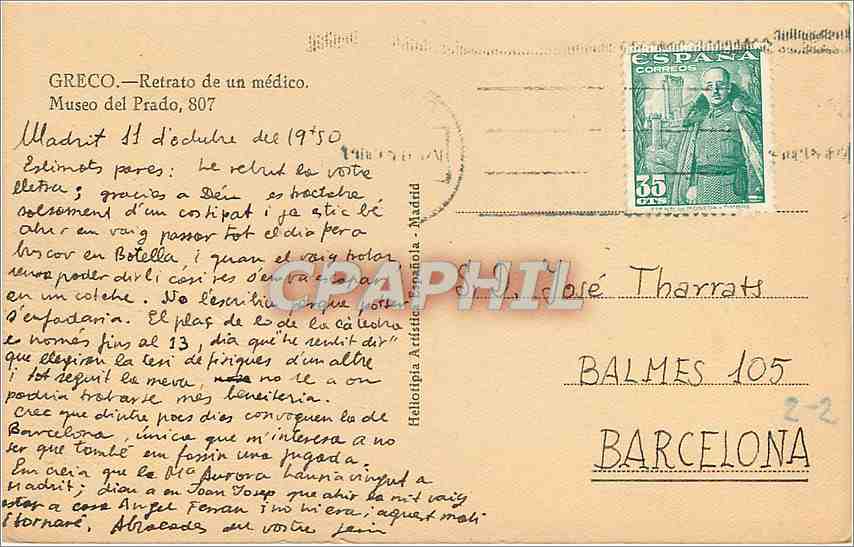 GRECO.—Retrato de un médico.
Museo del Prado, 807
ESPAÑA
CORREOS
35
CTS
Madrit 11 d'octubre del 1950
Estimats pares: he rebut la vostre
lletra; gracies a Déu es tractaba
solsament d'un costipat i ja estic bé
ahir em vaig passar tot el dia per a
buscar en Botella, i quan el vaig trobar
sense poder dirli casi res s'em va escapar
en un cotche. No l'escribiu perque potser
s'enfadaria. El plaç de lo de la càtedra
es només fins al 13, dia que he sentit dir
que llegiran la tesi de físiques d'un altre
i tot seguit la meva, no se a on
podria trobarse mes beneiteria.
Crec que dintre pocs dies convoquen la de
Barcelona, única que m'interesa a no
ser que també em fassin una jugada.
Em creia que la Mª Aurora hauria vingut a
Madrit; dieu a en Joan Josep que ahir la nit vaig
estar a casa Angel Ferran i no hi era i aquest matí
i tornaré. Abraçades del vostre
Heliotipia Artística Española - Madrid
CPAPHIL
S.D. José Tharrats
BALMES 105
2-2
BARCELONA